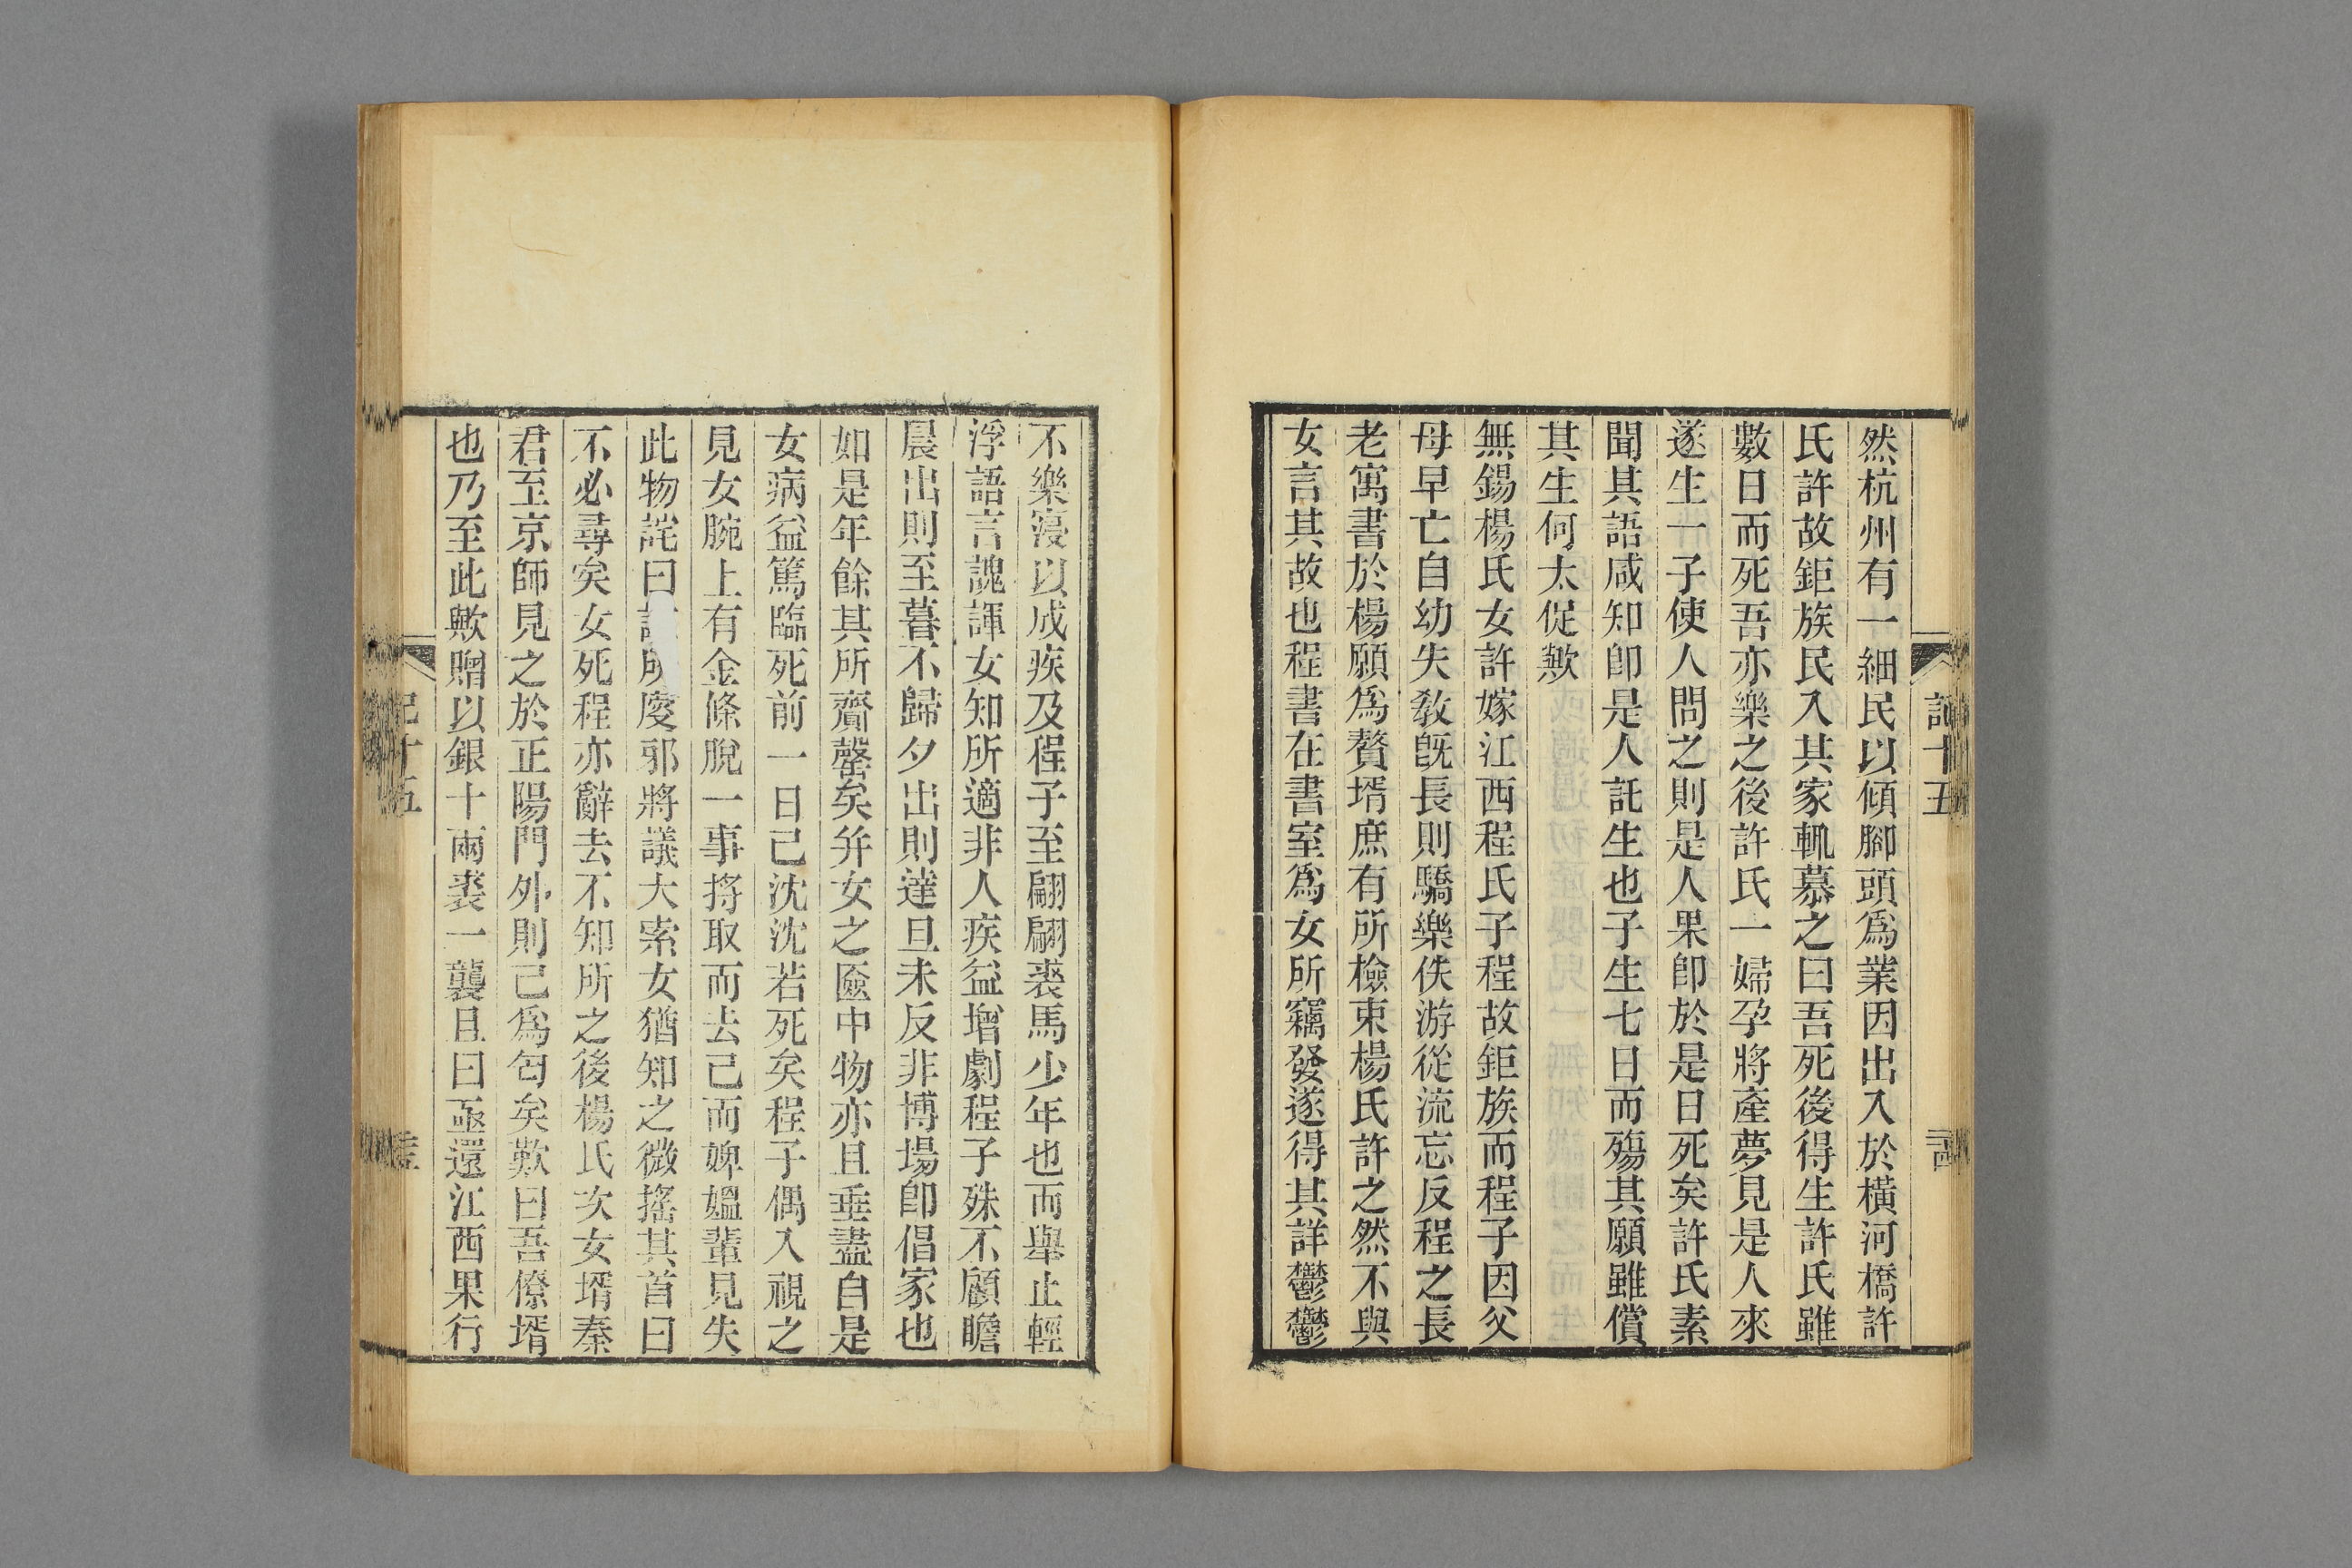 然杭州有一細民以傾腳頭爲業因出入於橫河橋許
氏許故鉅族民入其家輒慕之曰吾死後得生許氏雖
數日而死吾亦樂之後許氏一婦孕將產夢見是人來
遂生一子使人問之則是人果卽於是日死矣許氏素
聞其語咸知卽是人託生也子生七日而殤其願雖償
其生何太促歟
無錫楊氏女許嫁江西程氏子程故鉅族而程子因父
母早亡自幼失敎旣長則驕樂佚游從流忘反程之長
老寓書於楊願爲贅壻庶有所檢束楊氏許之然不與
女言其故也程書在書室爲女所竊發遂得其詳鬱鬱
不樂寖以成疾及程子至翩翩裘馬少年也而舉止輕
浮語言謥諢女知所適非人疾益增劇程子殊不顧瞻
晨出則至暮不歸夕出則達旦未反非博場卽倡家也
如是年餘其所齎罄矣幷女之匳中物亦且垂盡自是
女病益篤臨死前一日已沈沈若死矣程子偶入視之
見女腕上有金條脫一事捋取而去已而婢媼輩見失
此物詫曰所廋邪將議大索女猶知之微搖其首曰
不必尋矣女死程亦辭去不知所之後楊氏次女壻秦
君至京師見之於正陽門外則已爲匄矣歎曰吾僚壻
也乃至此歟贈以銀十兩裘一襲且曰亟還江西果行
記十五